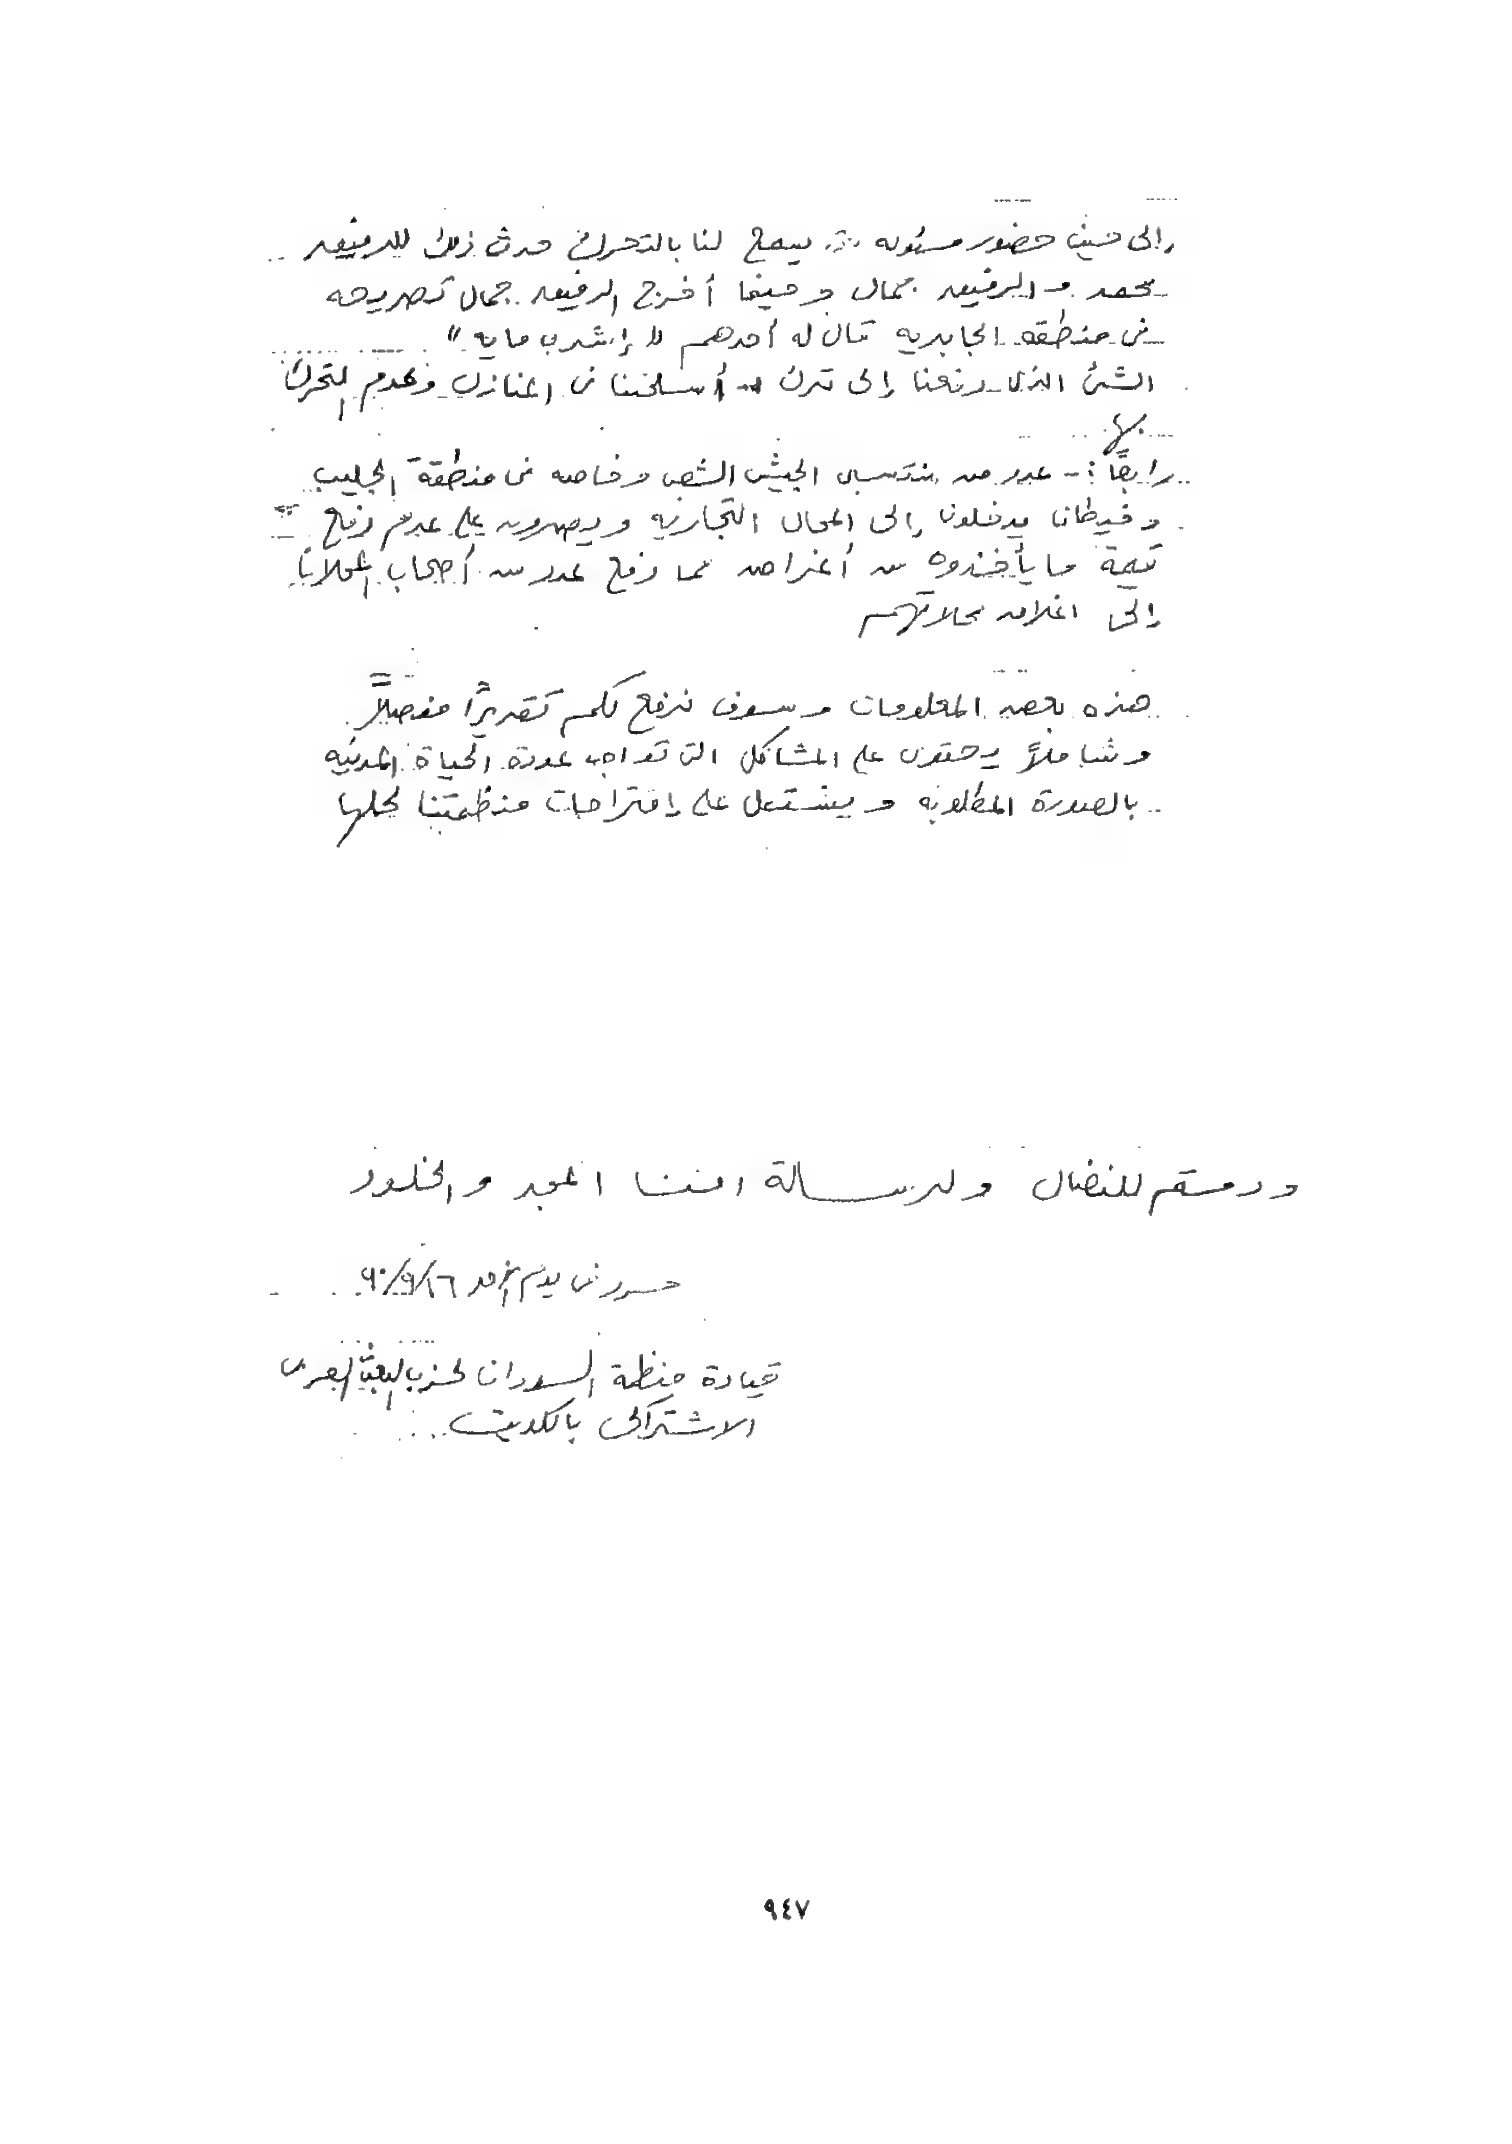 إلى حين حضور مسئوله يسمح لنا بالتحرك حدث ذلك للرفيق
محمد والرفيق جمال وحينما أخرج الرفيق جمال تصريحه
في منطقة الجابريه قال له أحدهم " إشرب مايه "
الشئ الذى دفعنا إلى ترك أسلحتنا في المنازل وعدم التحرك
بها
رابعًا :- عدد من منتسبى الجيش الشعبى وخاصه في منطقة الجليب
وخيطان يدخلون إلى المحال التجاريه ويصرون على عدم دفع
قيمة ما يأخذوه من أغراض مما دفع عدد من أصحاب المحلات
إلى اغلاق محلاتهم
هذه بعض المعلومات وسوف نرفع لكم تقريرًا مفصلاً
وشاملاً يحتوى على المشاكل التى تواجه عودة الحياة المدنيه
بالصورة المطلوبه ويشتمل على إقتراحات منظمتنا لحلها
ودمتم للنضال ولرسالة امتنا المجد والخلود
حرر في يوم الأحد ٩٠/٩/١٦
قيادة منظمة السودان لحزب البعث العربى
الاشتراكى بالكويت
٩٤٧